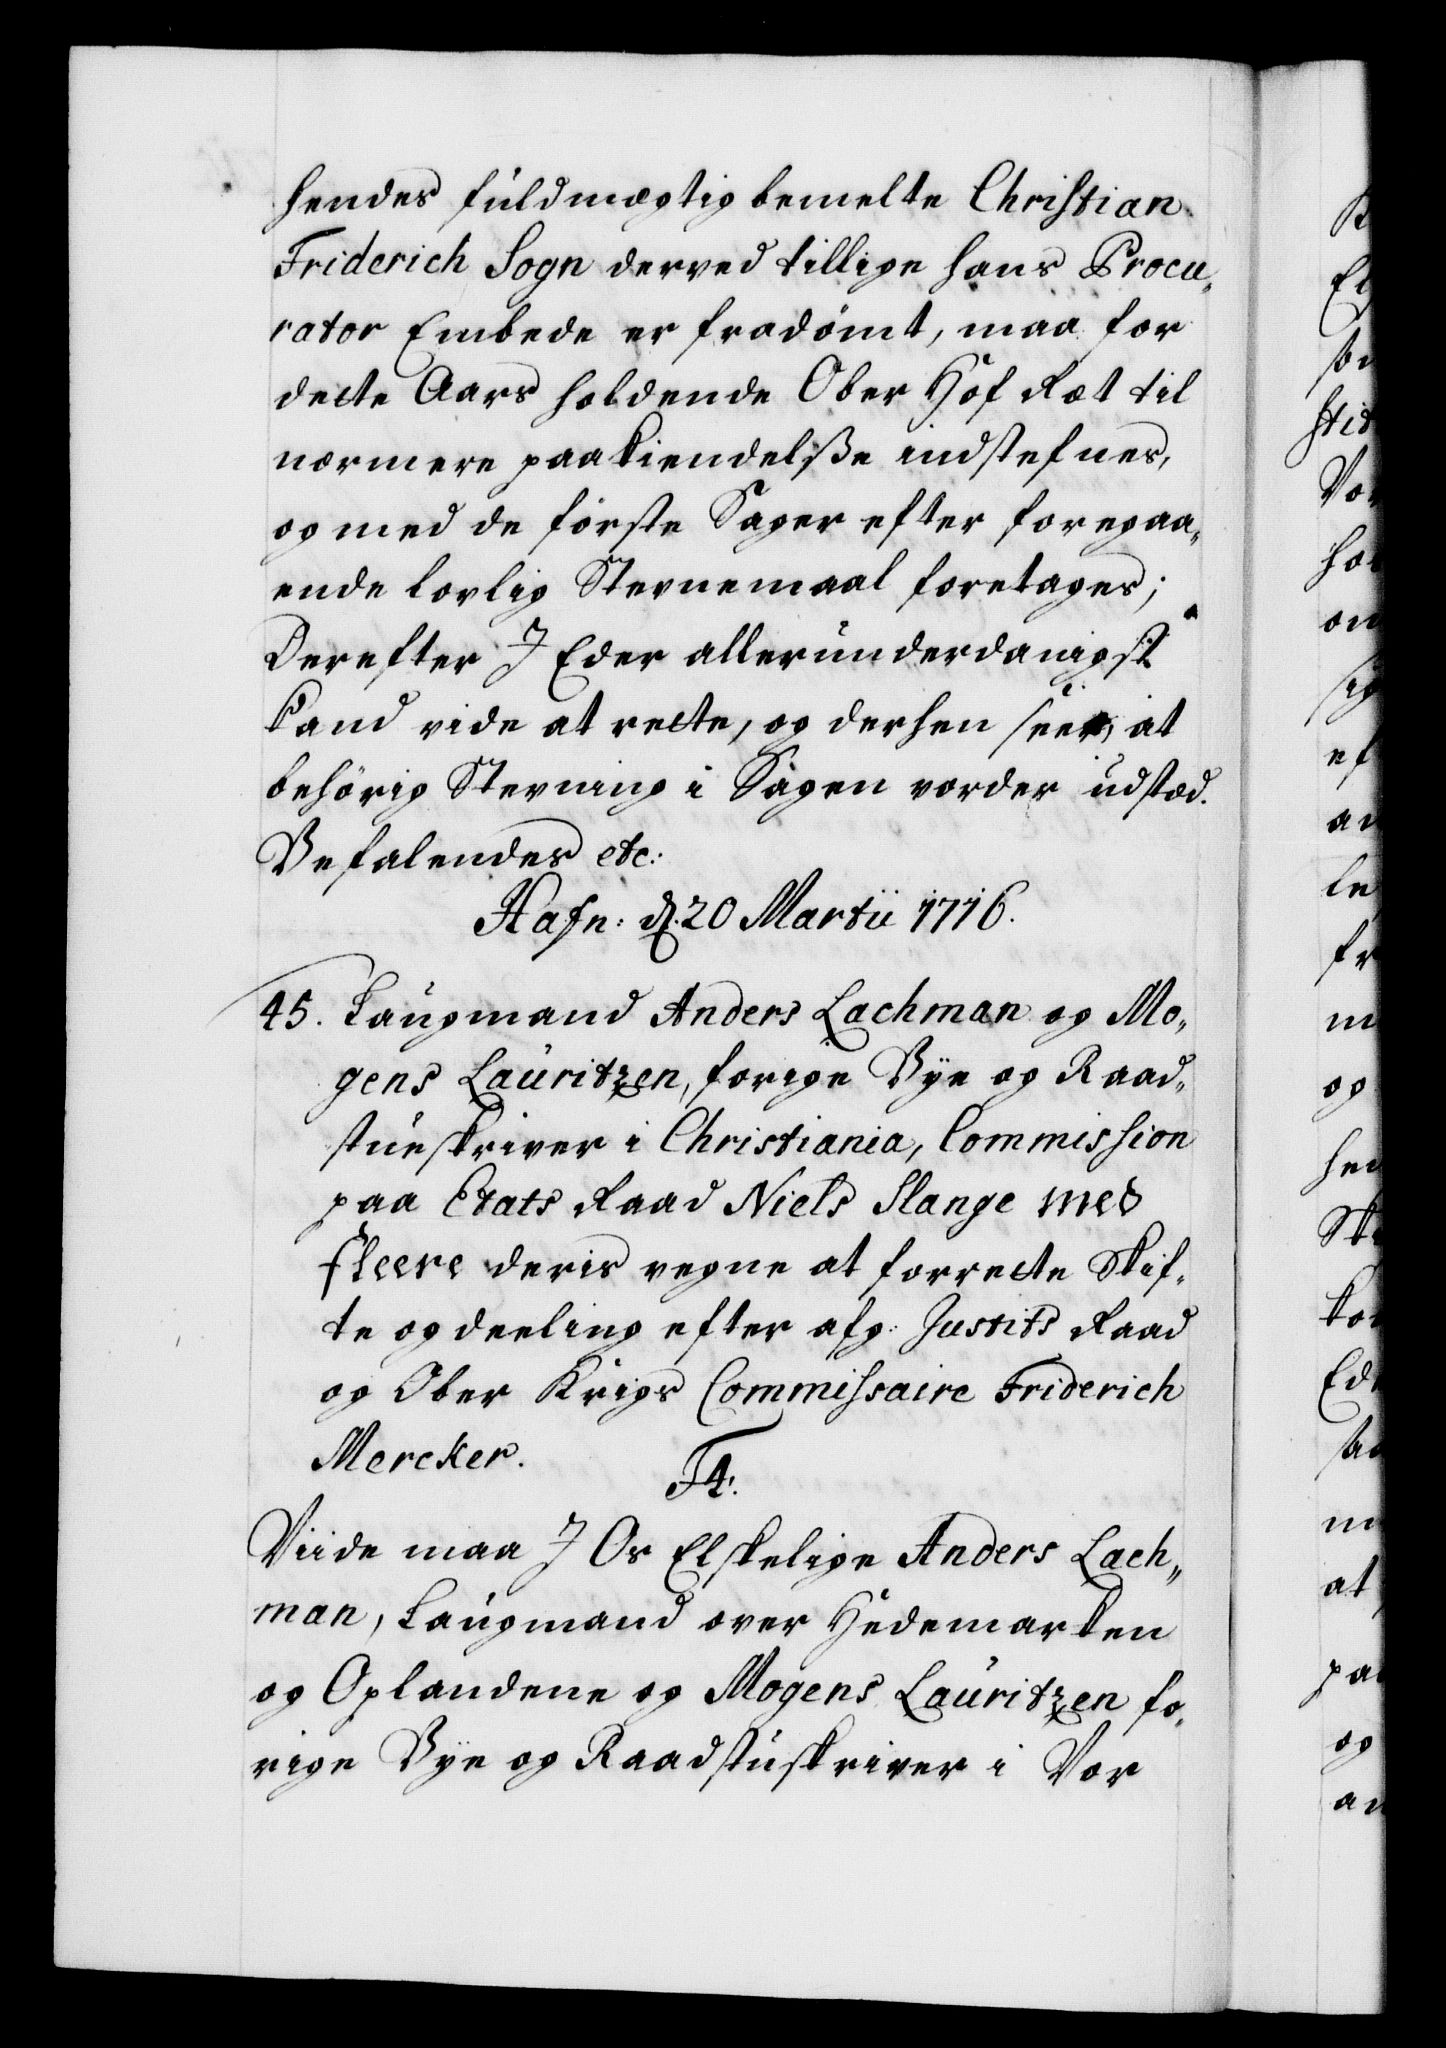 hendes fuldmægtig bemelte Christian
Friderich Sogn derved tillige hans Procu„
rator Embede er fradömt, maa for
dette Aars holdende Ober Hof Ræt til
nærmere paakiendelße indstefnes,
og med de förste Sager efter foregaa„
ende lovlig Stevnemaal foretages;
Derefter I Eder allerunderdanigst
kand vide at rette, og derhen seer, at
behörig Stevning i Sagen vorder udstæd.
Befalendes etc:
Hafn: d. 20 Martii 1716.
45. Laugmand Anders Lachman og Mo„
gens Lauritzen, forige Bÿe og Raad„
stueskriver i Christiania, Commission
paa Etats Raad Niels Slange med
fleere deris vegne at forrette Skif„
te og deeling efter afg: Justits Raad
og Ober Krigs Commissaire Friderich
Mercker.
F4.
Viide maa I Os Elskelige Anders Lach„
man, Laugmand over Hedemarken
og Oplandene og Mogens Lauritzen fo„
rige Bÿe og Raadstuskriver i Vor